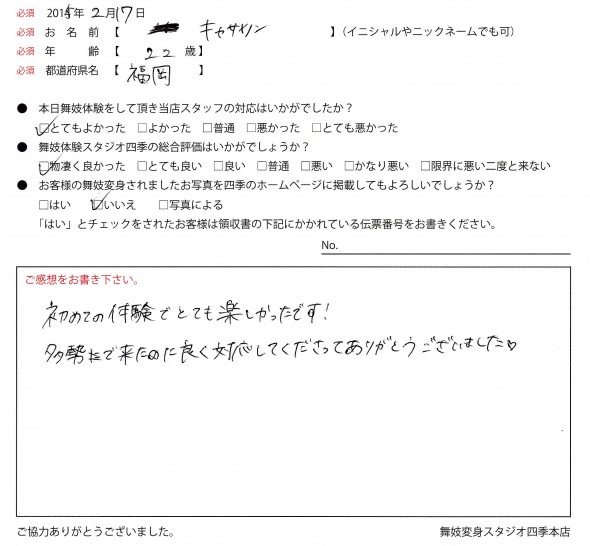 必須 2015年 2月17日
必須 お名前【 キャサリン 】(イニシャルやニックネームでも可)
必須 年齢【 22 歳】
必須 都道府県名【 福岡 】
● 本日舞妓体験をして頂き当店スタッフの対応はいかがでしたか?
☑とてもよかった □よかった □普通 □悪かった □とても悪かった
● 舞妓体験スタジオ四季の総合評価はいかがでしょうか?
☑物凄く良かった □とても良い □良い □普通 □悪い □かなり悪い □限界に悪い二度と来ない
● お客様の舞妓変身されましたお写真を四季のホームページに掲載してもよろしいでしょうか?
□はい ☑いいえ □写真による
「はい」とチェックをされたお客様は領収書の下記にかかれている伝票番号をお書きください。
No.
ご感想をお書き下さい。
初めての体験でとても楽しかったです!
多勢で来たのに良く対応してくださってありがとうございました♡
ご協力ありがとうございました。 舞妓変身スタジオ四季本店